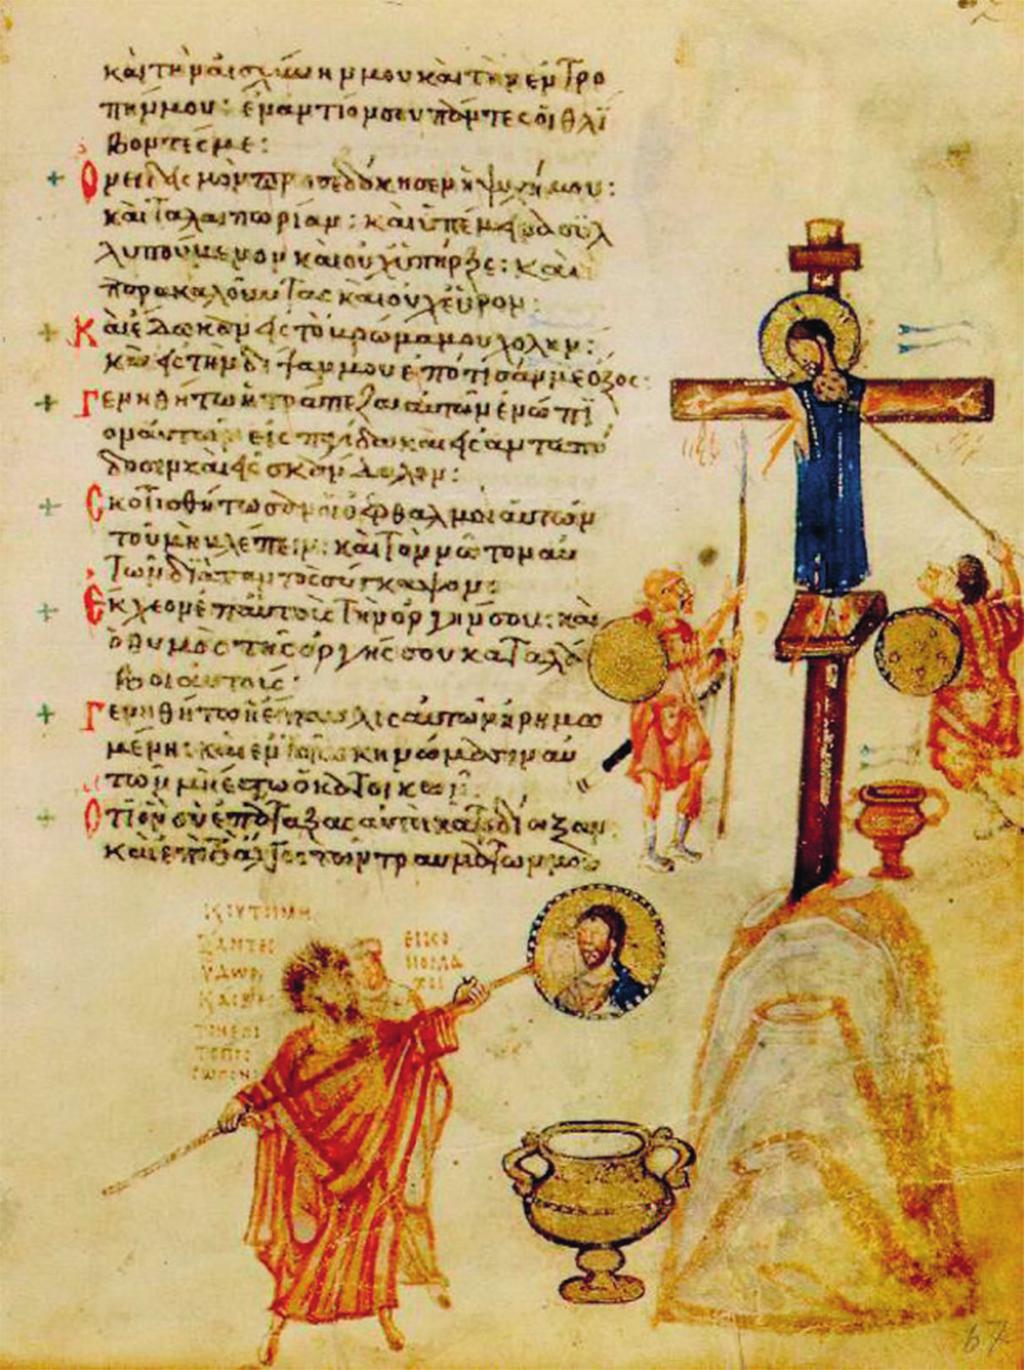 καὶ τὴν αἰσχύνην μου καὶ τὴν ἐντρο
πήν μου: ἐναντίον σου πάντες οἱ θλί
βοντές με:
+ Ὀνειδισμὸν προσεδόκησεν ἡ ψυχή μου:
καὶ ταλαιπωρίαν: καὶ ὑπέμεινα συλ
λυπούμενον καὶ οὐχ ὑπῆρξε: καὶ
παρακαλοῦντας καὶ οὐχ εὗρον:
+ Καὶ ἔδωκαν εἰς τὸ βρῶμα μου χολήν:
κ εἰς τὴν δίψαν μου ἐπότισάν με ὄξος:
+ Γενηθήτω ἡ τράπεζα αὐτῶν ἐνώπι
ον αὐτῶν εἰς παγίδα καὶ εἰς ἀνταπό
δοσιν καὶ εἰς σκάνδαλον:
+ Σκοτισθήτωσαν οἱ ὀφθαλμοὶ αὐτῶν
τοῦ μὴ βλέπειν: καὶ τὸν νῶτον αὐ
τῶν διὰ παντὸς σύγκαμψον:
+ Ἔκχεον ἐπ αὐτοὺς τὴν ὀργήν σου: καὶ
ὁ θυμὸς τῆς ὀργῆς σου καταλά
βοι αὐτούς:
+ Γενηθήτω ἡ ἔπαυλις αὐτῶν ἠρημω
μένη: καὶ ἐν τοῖς σκηνώμασιν αὐ
τῶν μὴ ἔστω ὁ κατοικῶν:
+ Ὅτι ὃν σὺ ἐπάταξας αὐτοὶ κατεδίωξαν
καὶ ἐπὶ τὸ ἄλγος τῶν τραυμάτων μου
ΥΔΩΡ
ΕΙΚΟ
ΝΟΜΑ
ΧΟΙ
67